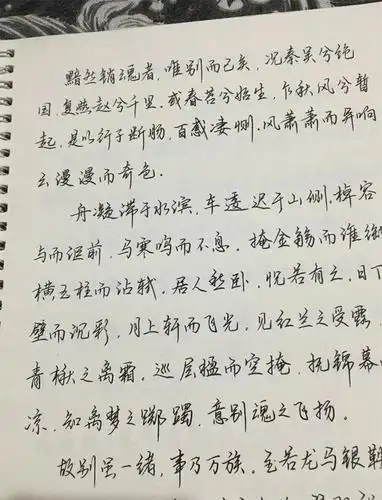 黯然销魂者，唯别而已矣，况秦吴兮绝
国，复燕赵兮千里．或春苔兮始生，乍秋风兮暂
起，是以行子断肠，百感凄恻．风萧萧而异响
云漫漫而奇色．
舟凝滞于水滨，车逶迟于山侧，棹容
与而讵前，马寒鸣而不息．掩金觞而谁御
横玉柱而沾轼．居人愁卧，恍若有亡，日下
壁而沉彩，月上轩而飞光，见红兰之受露
青楸之离霜．巡层楹而空掩，抚锦幕
凉．知离梦之踯躅，意别魂之飞扬。
故别虽一绪，事乃万族．至若龙马银鞍